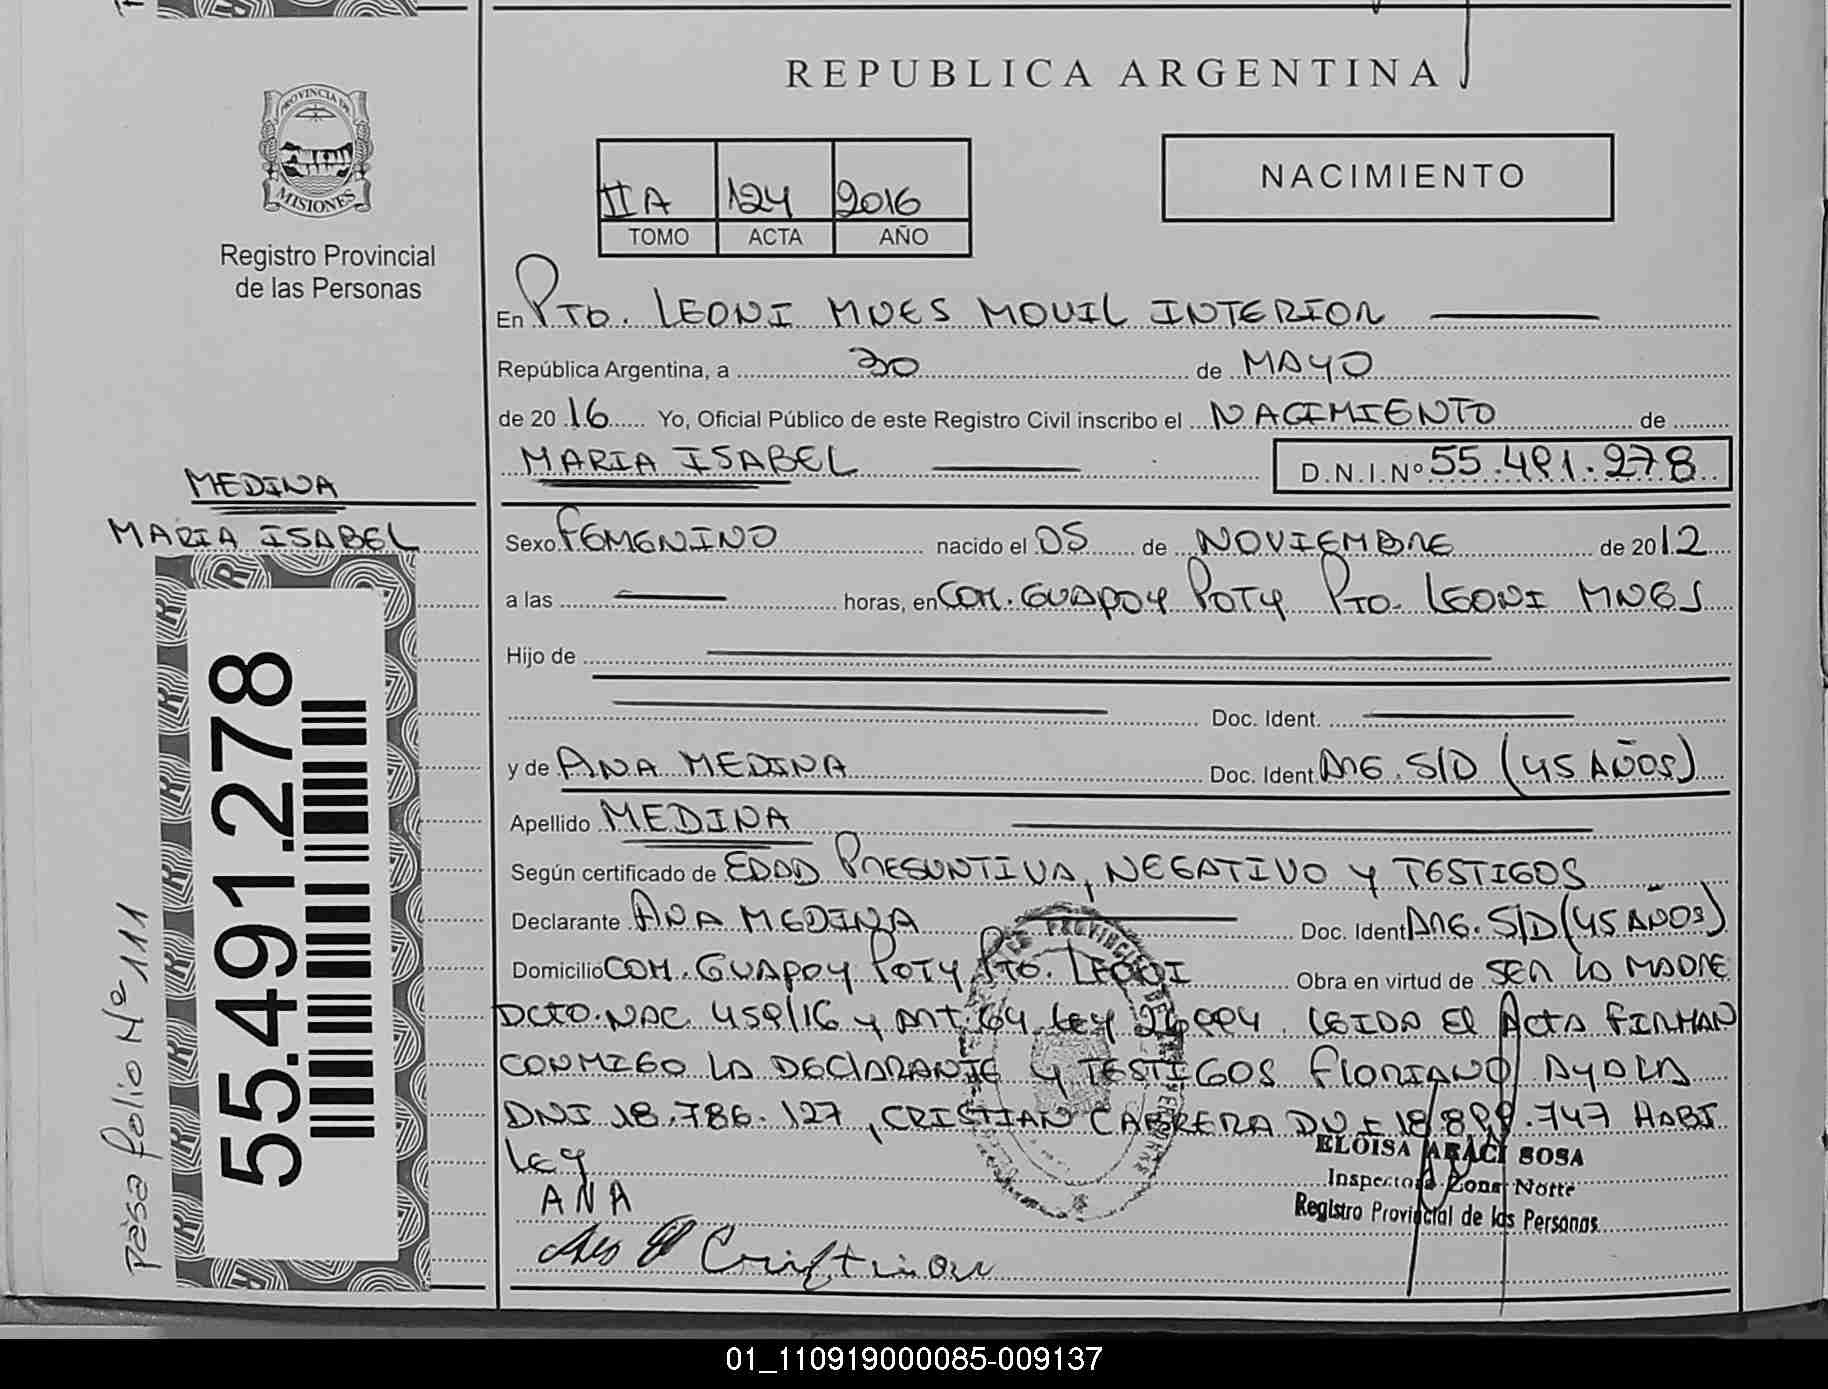 REPUBLICA ARGENTINA
PROVINCIA DE
MISIONES
Registro Provincial
de las Personas
IIA 124 2016
TOMO ACTA AÑO
NACIMIENTO
En PTO. LEONI MNES MOVIL INTERIOR
República Argentina, a 30 de MAYO
de 2016 Yo, Oficial Público de este Registro Civil inscribo el NACIMIENTO de
MARIA ISABEL D.N.I.Nº 55.491.278
MEDINA
MARIA ISABEL
Sexo FEMENINO nacido el 05 de NOVIEMBRE de 2012
a las horas, en COM. GUAPOY POTY PTO. LEONI MNES
Hijo de
Doc. Ident.
y de ANA MEDINA Doc. Ident. ARG. S/D (45 AÑOS)
Apellido MEDINA
Según certificado de EDAD PRESUNTIVA, NEGATIVO Y TESTIGOS
Declarante ANA MEDINA Doc. Ident ARG. S/D (45 AÑOS)
Domicilio COM. GUAPOY POTY PTO. LEONI Obra en virtud de SER LA MADRE
DCTO. NAC 459/16 Y ART. 64 LEY 26994. LEIDA EL ACTA FIRMAN
CONMIGO LA DECLARANTE Y TESTIGOS FLORIANO AYALA
DNI 18.786.127, CRISTIAN CABRERA DNI 18.899.747 HABI
LEY
ANA
Cristian
ELOISA ARACI SOSA
Inspectora Zona Norte
Registro Provincial de las Personas
55.491.278
pasa folio Nº 111
01_110919000085-009137